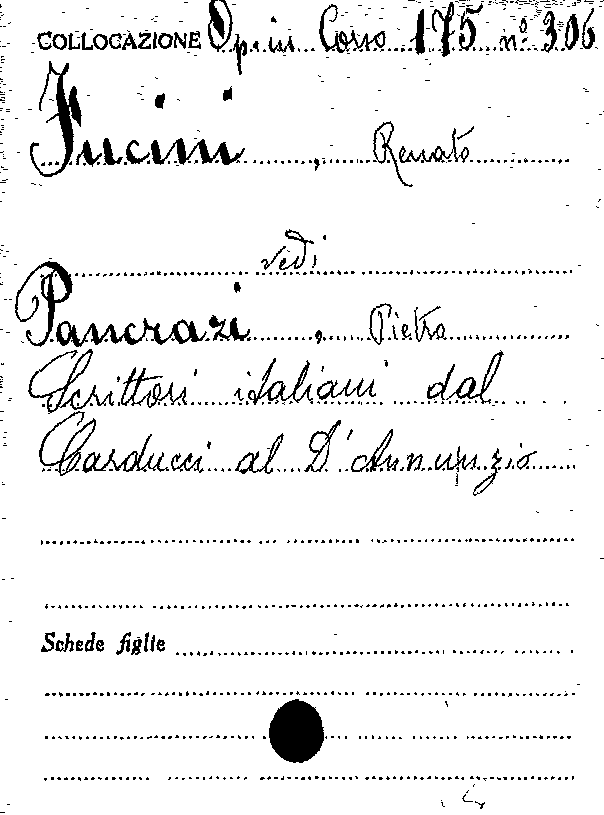 COLLOCAZIONE Op. in Corso 175 nº 306
Fucini, Renato
vedi
Pancrazi, Pietro
Scrittori italiani dal
Carducci al D'Annunzio
Schede figlie